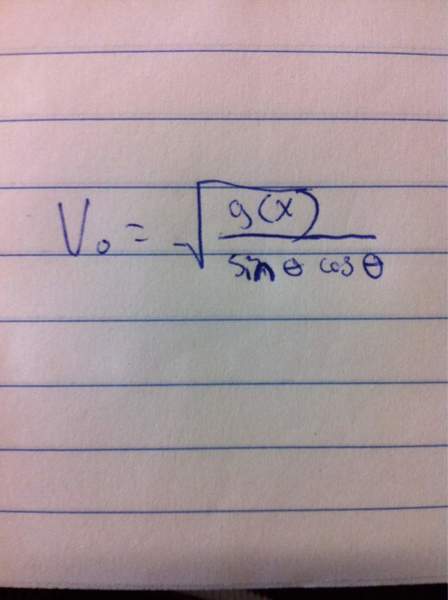 V₀ = √(g(x) / sin θ cos θ)